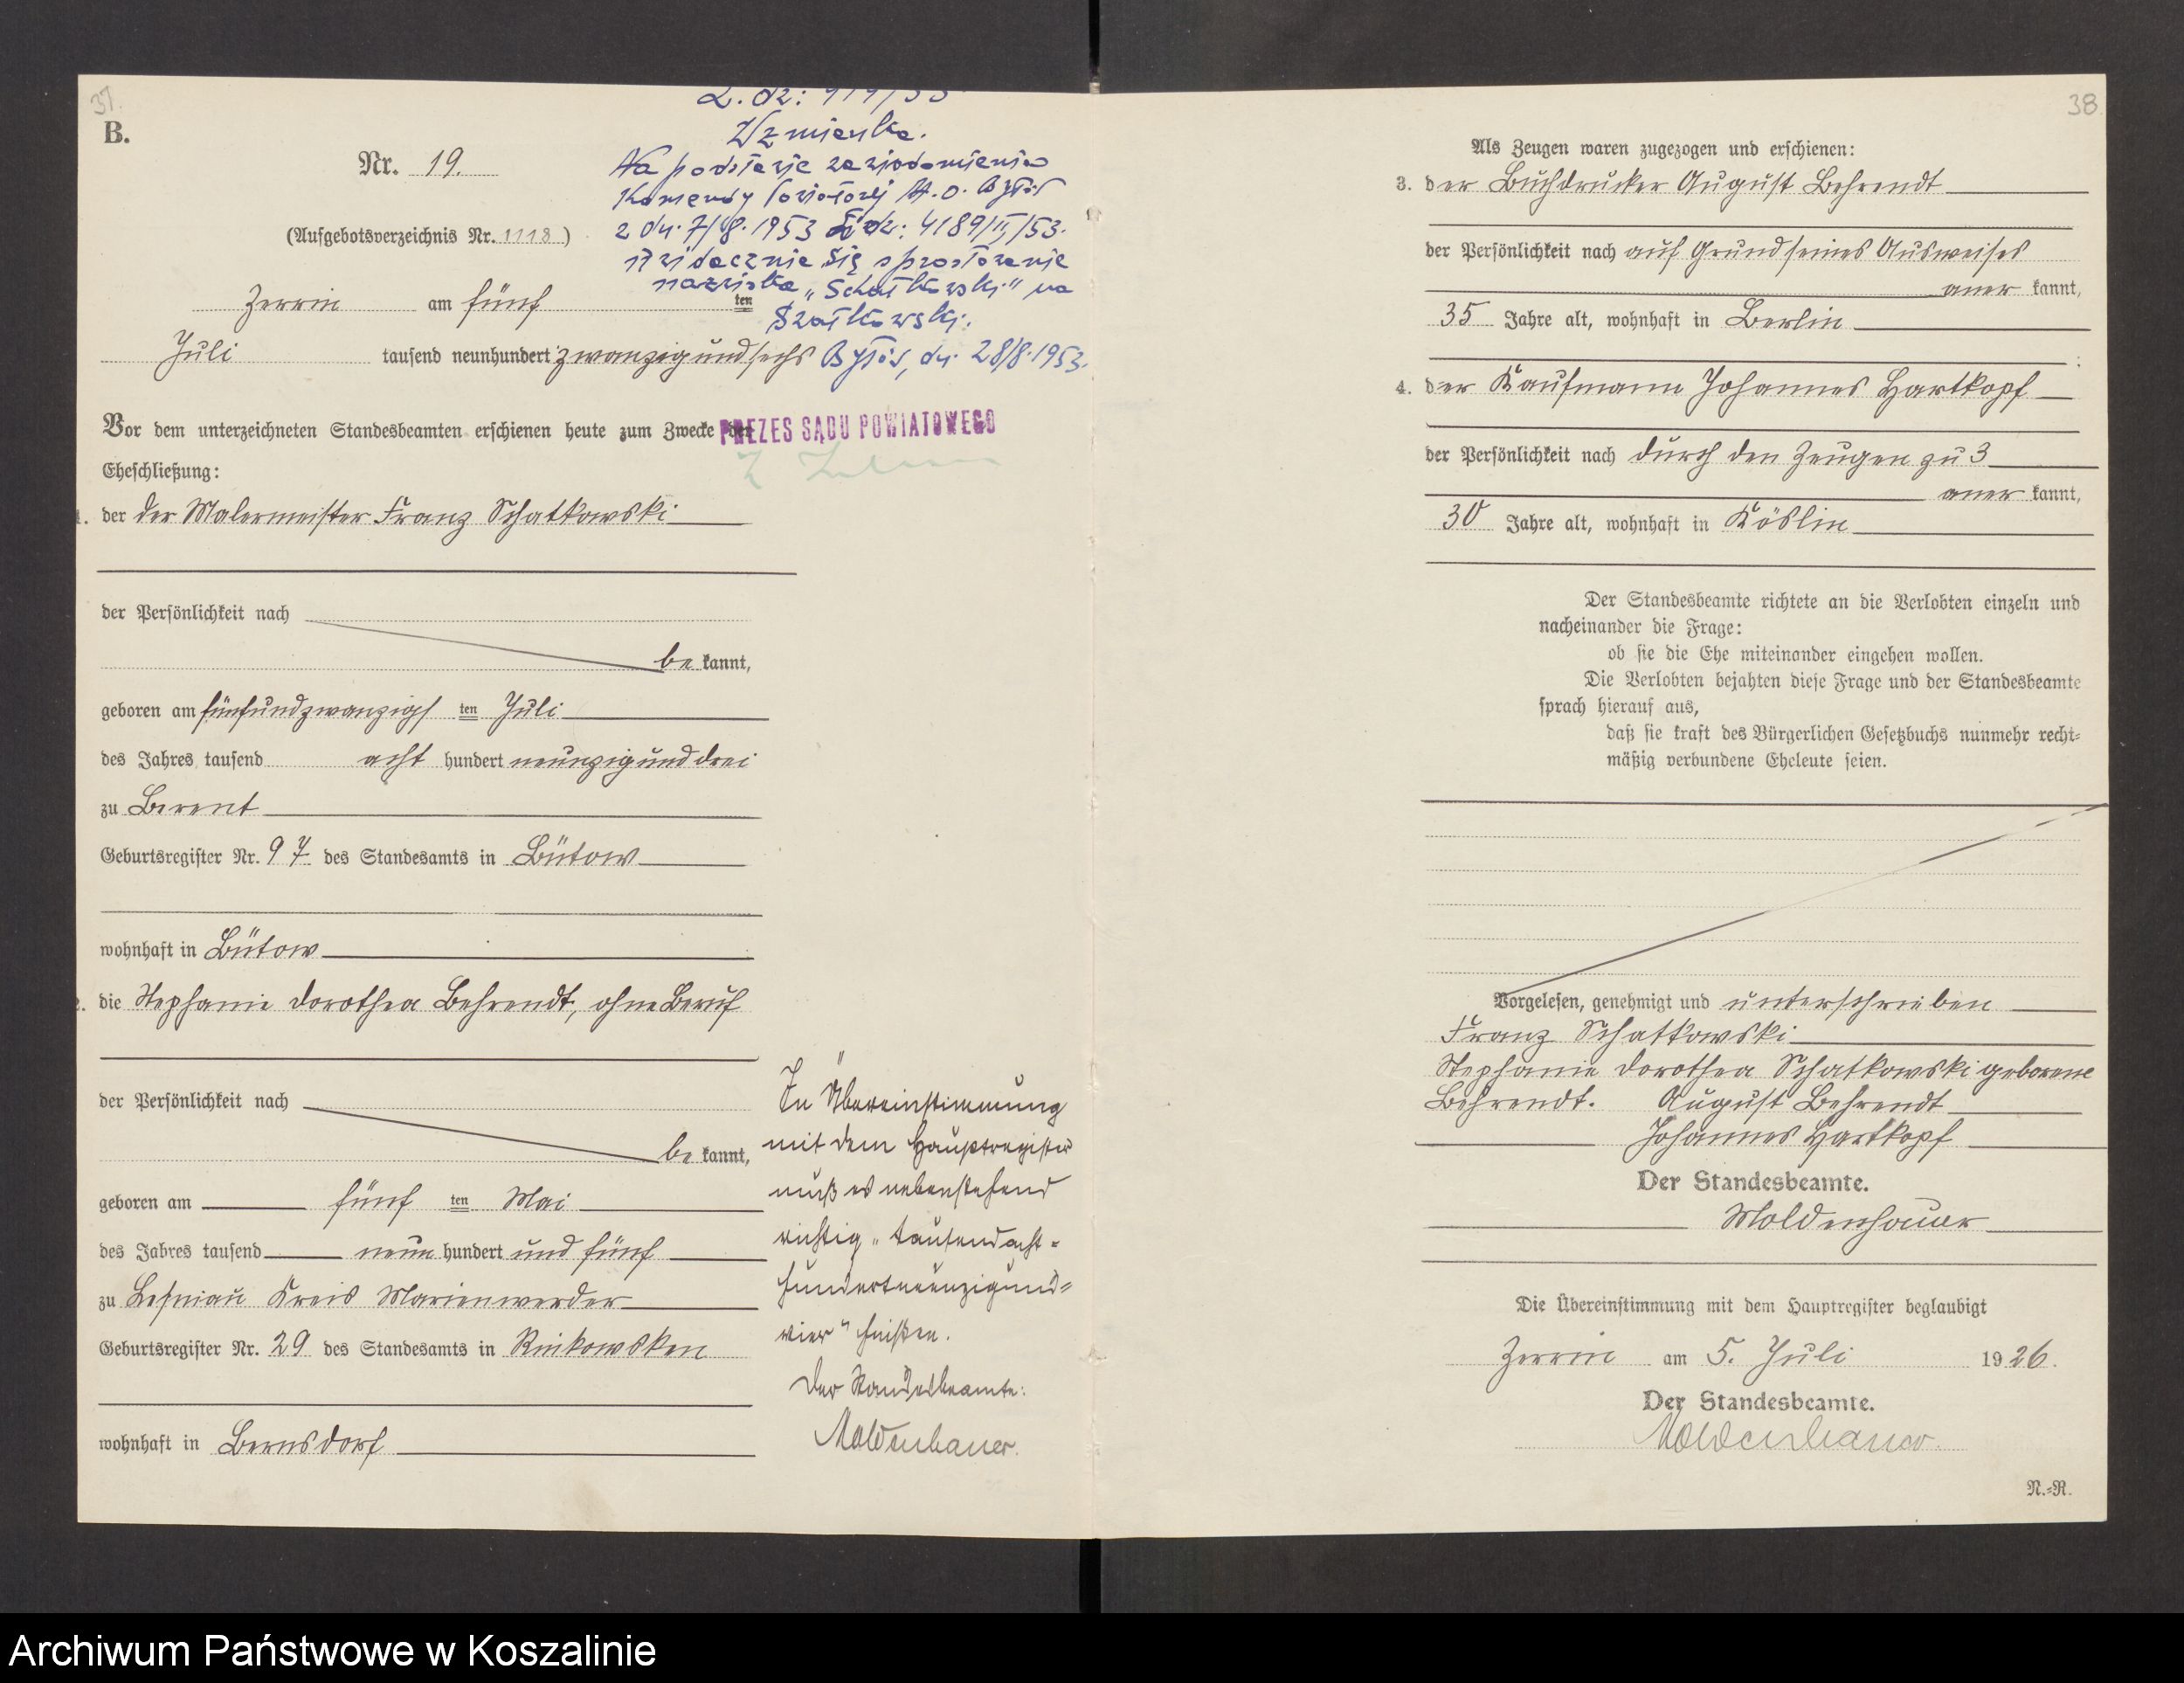 37.
B.
Nr. 19.
(Aufgebotsverzeichnis Nr. 1118)
Wzmianka.
Na podstawie zawiadomienia
Komendy Powiatowej M.O. Bytów
z dn. 7/8.1953 L.dz: 4189/II/53.
uwidacznia się sprostowanie
nazwiska „Schatkowski" na
Szatkowski.
Bytów, dn. 28/8.1953.
Zerrin am fünf ten
Juli tausend neunhundert zwanzig und sechs
Vor dem unterzeichneten Standesbeamten erschienen heute zum Zwecke der
PREZES SĄDU POWIATOWEGO
Eheschließung:
1. der der Malermeister Franz Schatkowski
der Persönlichkeit nach
be kannt,
geboren am fünfundzwanzigs ten Juli
des Jahres tausend acht hundert neunzig und drei
zu Berent
Geburtsregister Nr. 97 des Standesamts in Bütow
wohnhaft in Bütow
2. die Stephanie Dorothea Behrendt, ohne Beruf
der Persönlichkeit nach
be kannt,
geboren am fünf ten Mai
des Jahres tausend neun hundert und fünf
zu Lesniau Kreis Marienwerder
Geburtsregister Nr. 29 des Standesamts in Rinkowsken
wohnhaft in Bernsdorf
In Übereinstimmung
mit dem Hauptregister
muß es nebenstehend
richtig „tausendacht=
hundertneunzigund=
vier" heißen.
Der Standesbeamte:
Moldenhauer.
38
Als Zeugen waren zugezogen und erschienen:
3. der Buchdrucker August Behrendt
der Persönlichkeit nach auf Grund seines Ausweises
aner kannt,
35 Jahre alt, wohnhaft in Berlin
4. der Kaufmann Johannes Hartkopf
der Persönlichkeit nach durch den Zeugen zu 3
aner kannt,
30 Jahre alt, wohnhaft in Köslin
Der Standesbeamte richtete an die Verlobten einzeln und
nacheinander die Frage:
ob sie die Ehe miteinander eingehen wollen.
Die Verlobten bejahten diese Frage und der Standesbeamte
sprach hierauf aus,
daß sie kraft des Bürgerlichen Gesetzbuchs nunmehr recht=
mäßig verbundene Eheleute seien.
Vorgelesen, genehmigt und unterschrieben
Franz Schatkowski
Stephanie Dorothea Schatkowski geborene
Behrendt. August Behrendt
Johannes Hartkopf
Der Standesbeamte.
Moldenhauer
Die Übereinstimmung mit dem Hauptregister beglaubigt
Zerrin am 5. Juli 1926.
Der Standesbeamte.
Moldenhauer.
N.=R.
Archiwum Państwowe w Koszalinie